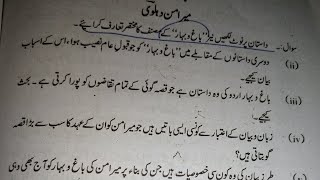 میر امن دہلوی
سوال۔ داستان پر نوٹ لکھیں نیز "باغ و بہار" کے مصنف کا مختصر تعارف کرائیے۔
(ii) دوسری داستانوں کے مقابلے میں "باغ و بہار" کو جو قبول عام نصیب ہوا، اس کے اسباب
بیان کیجیے۔
(iii) باغ و بہار اردو کی وہ داستان ہے جو قصہ گوئی کے تمام تقاضوں کو پورا کرتی ہے۔ بحث
کیجیے۔
(iv) زبان و بیان کے اعتبار سے کونسی ایسی باتیں ہیں جو میر امن کو ان کے عہد کا سب سے بڑا قصہ
گو بناتی ہیں؟
طرز بیان کی وہ کون سی خصوصیات ہیں جن کی بناء پر میر امن کی باغ و بہار کو آج بھی وہی